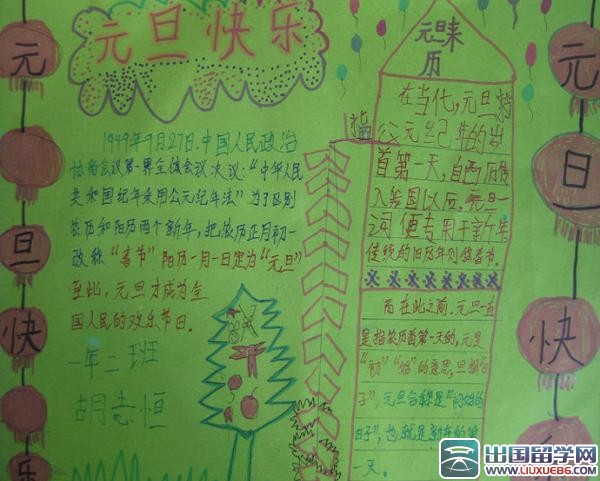 元旦快乐
1949年9月27日,中国人民政治
协商会议第一界全体会议决议:“中华人民
共和国纪年采用公元纪年法”为了区别
农历和阳历两个新年,把农历正月初一
改称“春节”阳历一月一日定为“元旦”
至此,元旦才成为全
国人民的欢乐节日。
一年二班
胡志恒
元旦来
历
在当代,元旦指
公元纪年的岁
首第一天,自西历传
入我国以历,元旦一
词便专用于新年
传统的旧历年则做春节。
而在此之前,元旦一直
是指农历首第一天的,元是
“初”“始”的意思,旦指“日
子”,元旦合称是“初始的
日子”,也就是新年的第
一天。
元
旦
快
乐
元
旦
快
乐
出国留学网
www.liuxue86.com